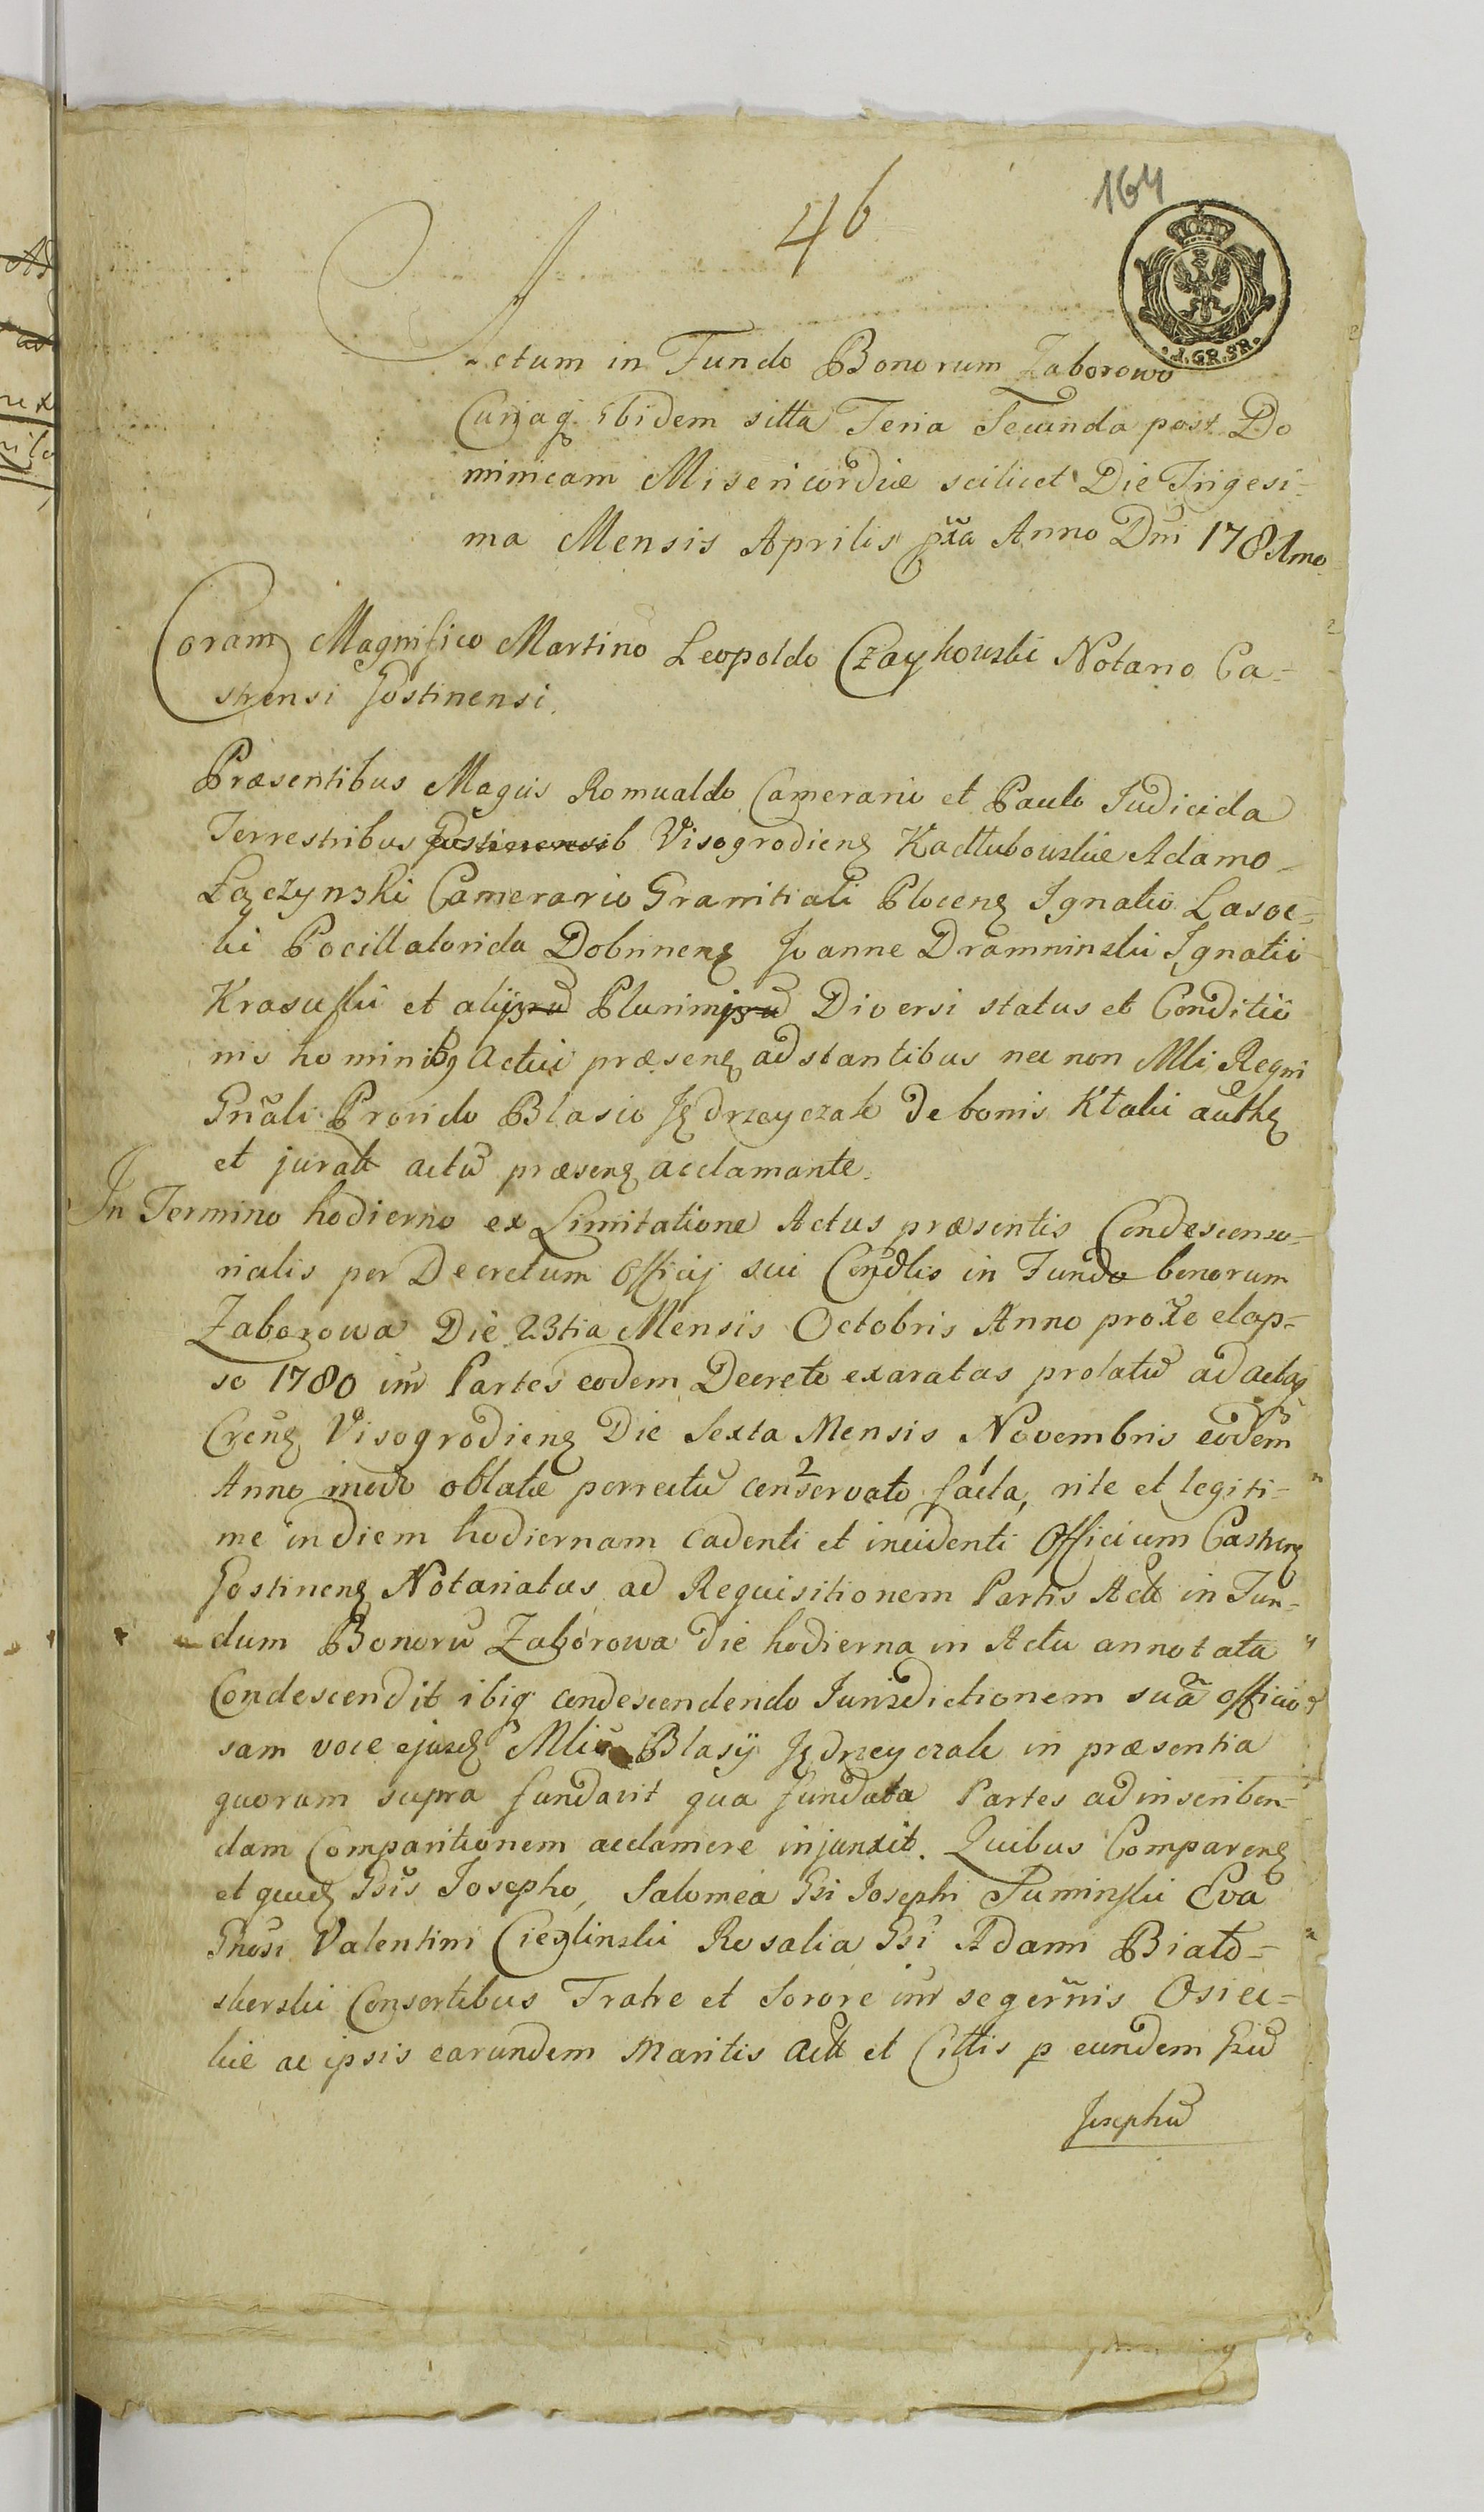 164
46
1.GR.SR.
Actum in Fundo Bonorum Zaborowo
Curiaq ibidem sitta Feria Secunda post Do
minicam Misericordiæ scilicet Die Trigesi=
ma Mensis Aprilis pꝛꝛa Anno Dni 1781mo
Coram Magnifico Martino Leopoldo Czaykowski Notario Ca=
strensi Gostinensi.
Præsentibus Magcis Romualdo Camerario et Paulo Judicida
Terrestribus Gostinensib Visogrodienꝫ Kadłubowskie Adamo
Łączynski Camerario Granitiali Plocenꝫ Ignatio Lasoc=
ki Pocillatorida Dobrinenꝫ Joanne Dramninski Ignatii
Krasuski et alijs Plurimis Diversi status et Conditio
nis hominibq Actui præsenꝫ adstantibus nec non Mli Regni
Gnali Provido Blasio Jędrzeyczak de bonis Ktaki authꝫ
et juratt actu præsenꝫ acclamante.
In Termino hodierno ex Limitatione Actus præsentis Condescenso=
rialis per Decretum Officij sui Condlis in Fundo bonorum
Zaborowa Die 23tia Mensis Octobris Anno proxe elap=
so 1780 inr Partes eodem Decreto exaratas prolatū ad actaq
Crenꝫ Visogrodienꝫ Die Sexta Mensis Novembris eodem
Anno modo oblatæ perrectū conservato facta, rite et legiti=
me in diem hodiernam cadenti et incidenti Officium Castrenꝫ
Gostinenꝫ Notariatus ad Requisitionem Partis Actt in Fun=
dum Bonorū Zaborowa die hodierna in Actu annotata
Condescendit ibiq condescendendo Jurisdictionem suā officio
sam voce ejusdꝫ Mlis Blasij Jędrzeyczak in præsentia
quorum supra fundavit qua fundata Partes ad inscriben=
dam Comparitionem acclamere injunxit. Quibus Comparenꝫ
et quidꝫ Gsis Josepho, Salomea Gsi Josephi Fuminski Eva
Gnosi Valentini Cieślinski Rosalia Gsi Adami Biało=
skerski Consortibus Fratre et Sorore inr se germis Osiec=
kie ac ipsis earundem Maritis Actt et Cittis p eundem Gsū
Josephū